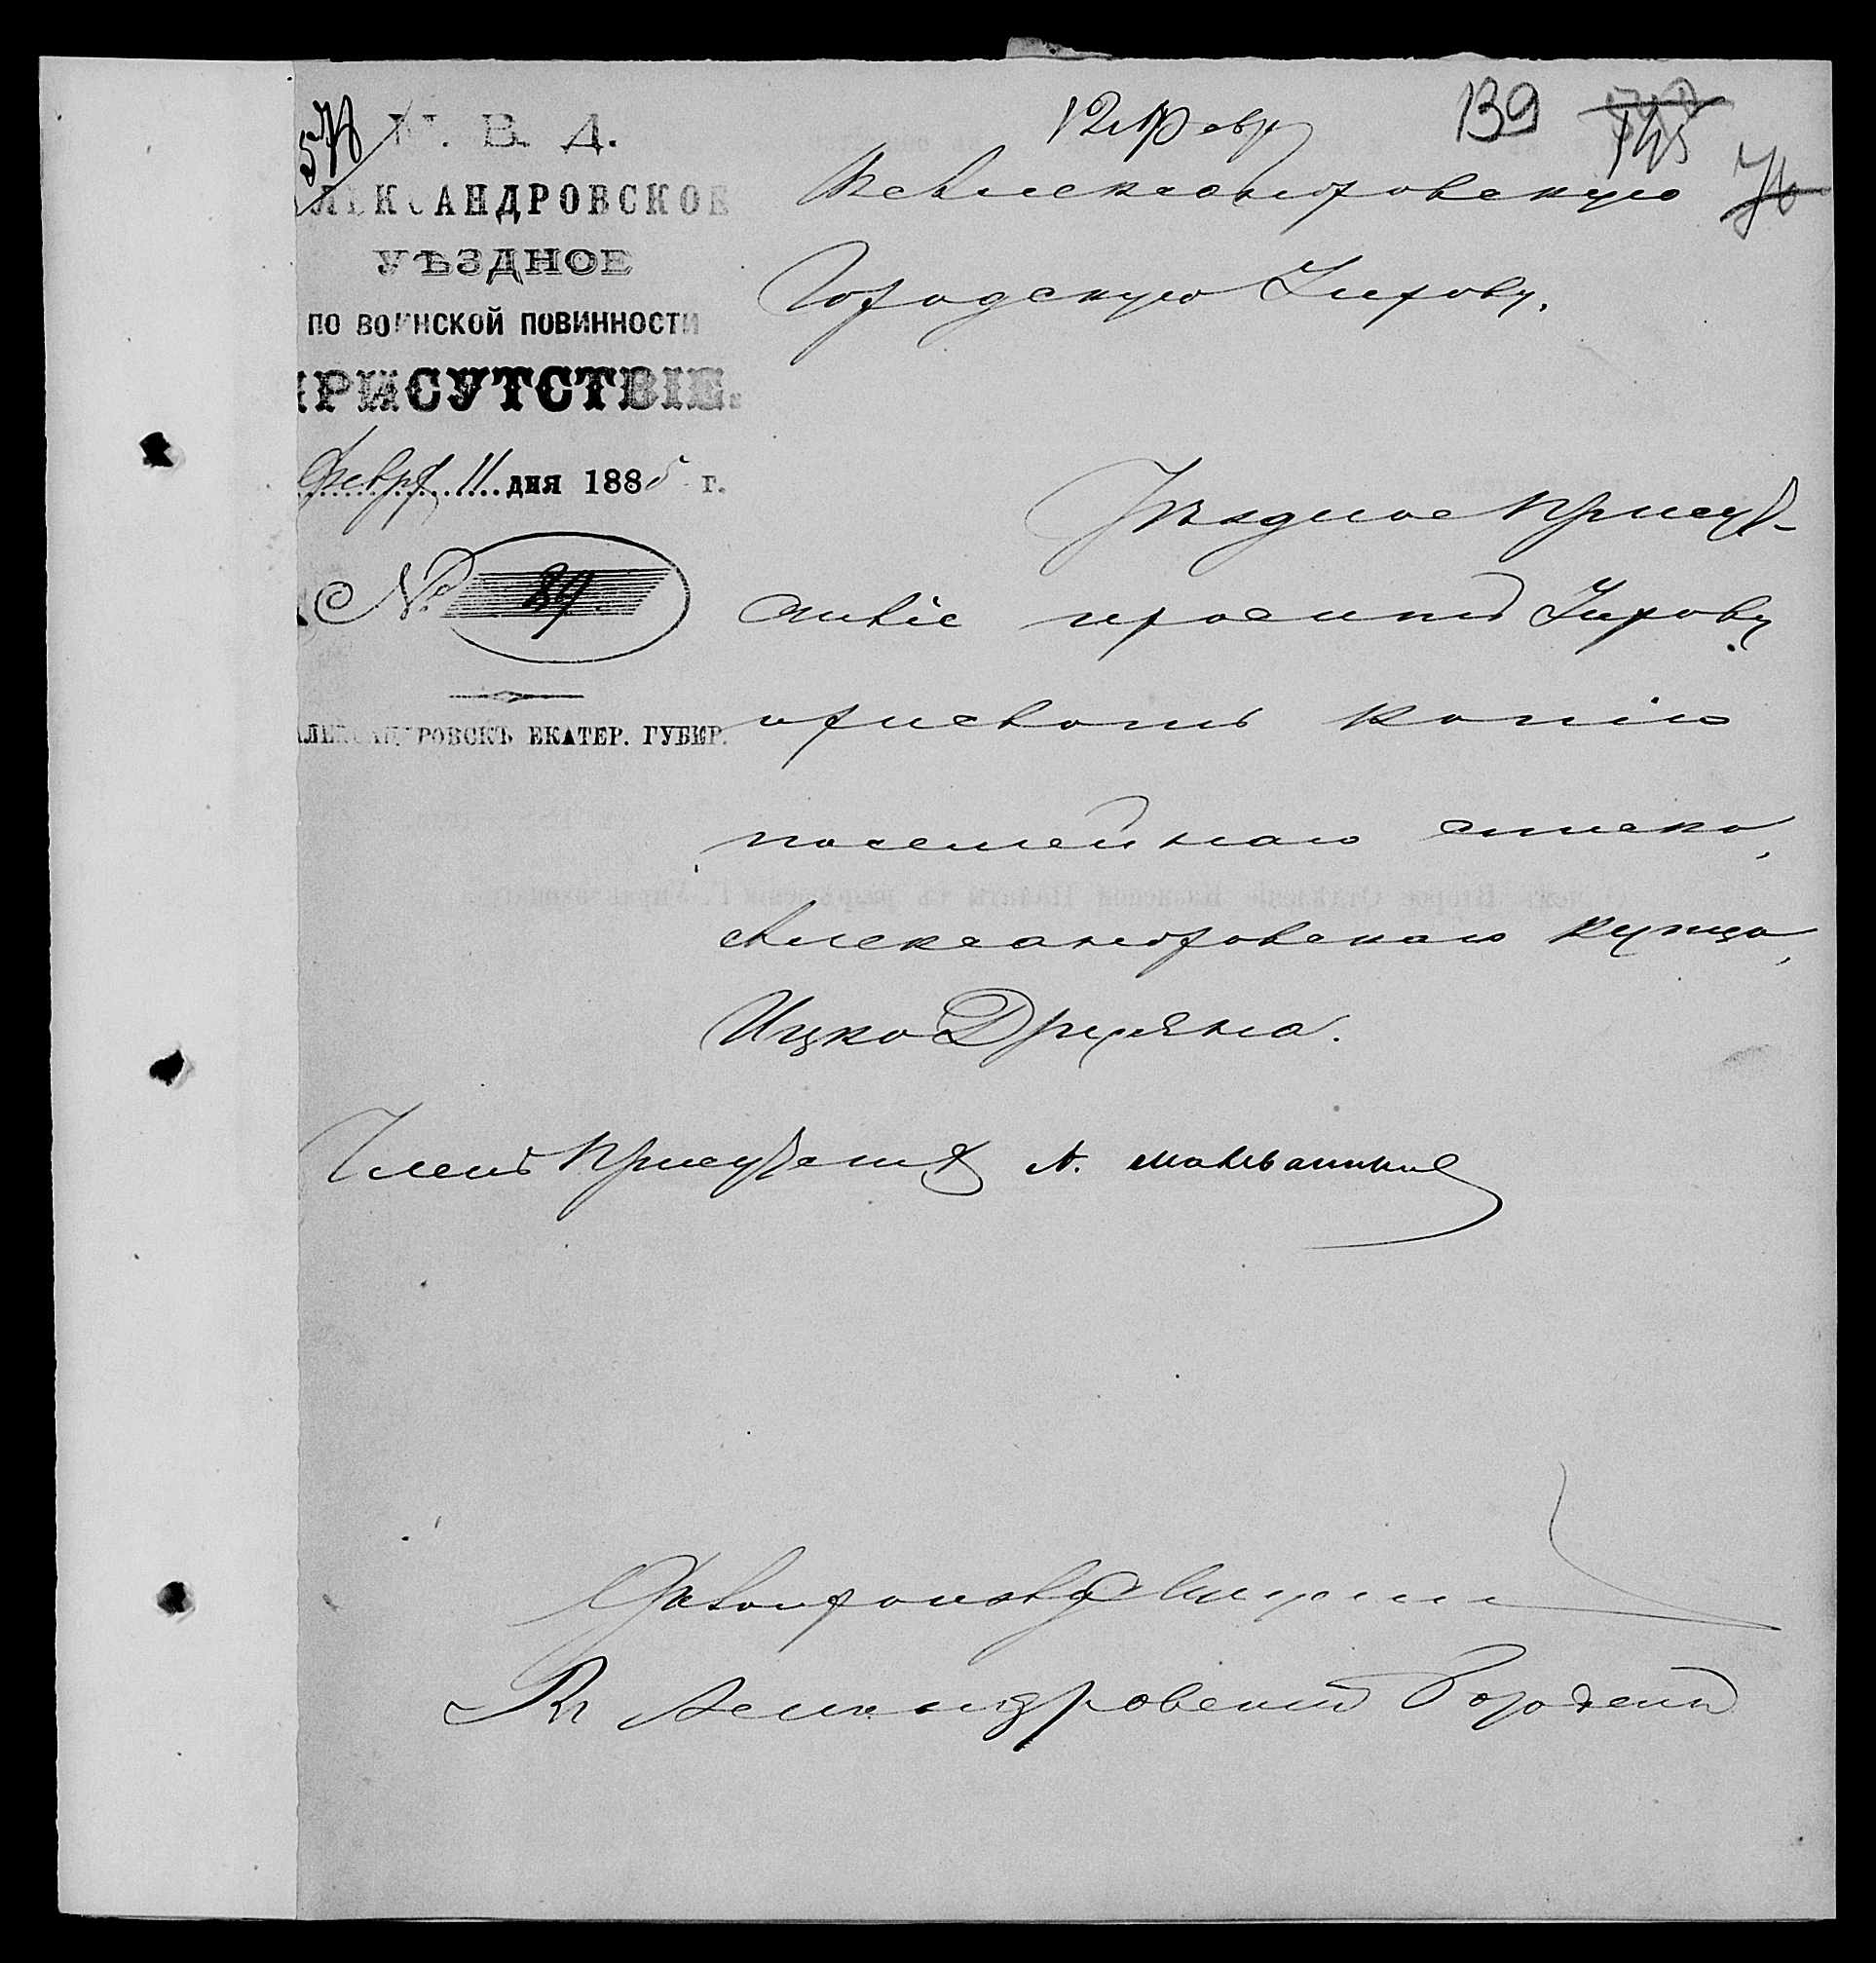 М. В. Д.
АЛЕКСАНДРОВСКОЕ
УѢЗДНОЕ
ПО ВОИНСКОЙ ПОВИННОСТИ
ПРИСУТСТВІЕ.
Февр. 11 дня 1885 г.
№ 89
АЛЕКСАНДРОВСКЪ ЕКАТЕР. ГУБЕР.
12 Февр
139
145
76
Въ Александровскую
Городскую Управу.
Уѣздное Присут-
ствіе проситъ Управу
прислать копію
посемейнаго списка,
Александровскаго купца,
Ицко
Членъ Присутствія А.
Въ Александровскій Городской